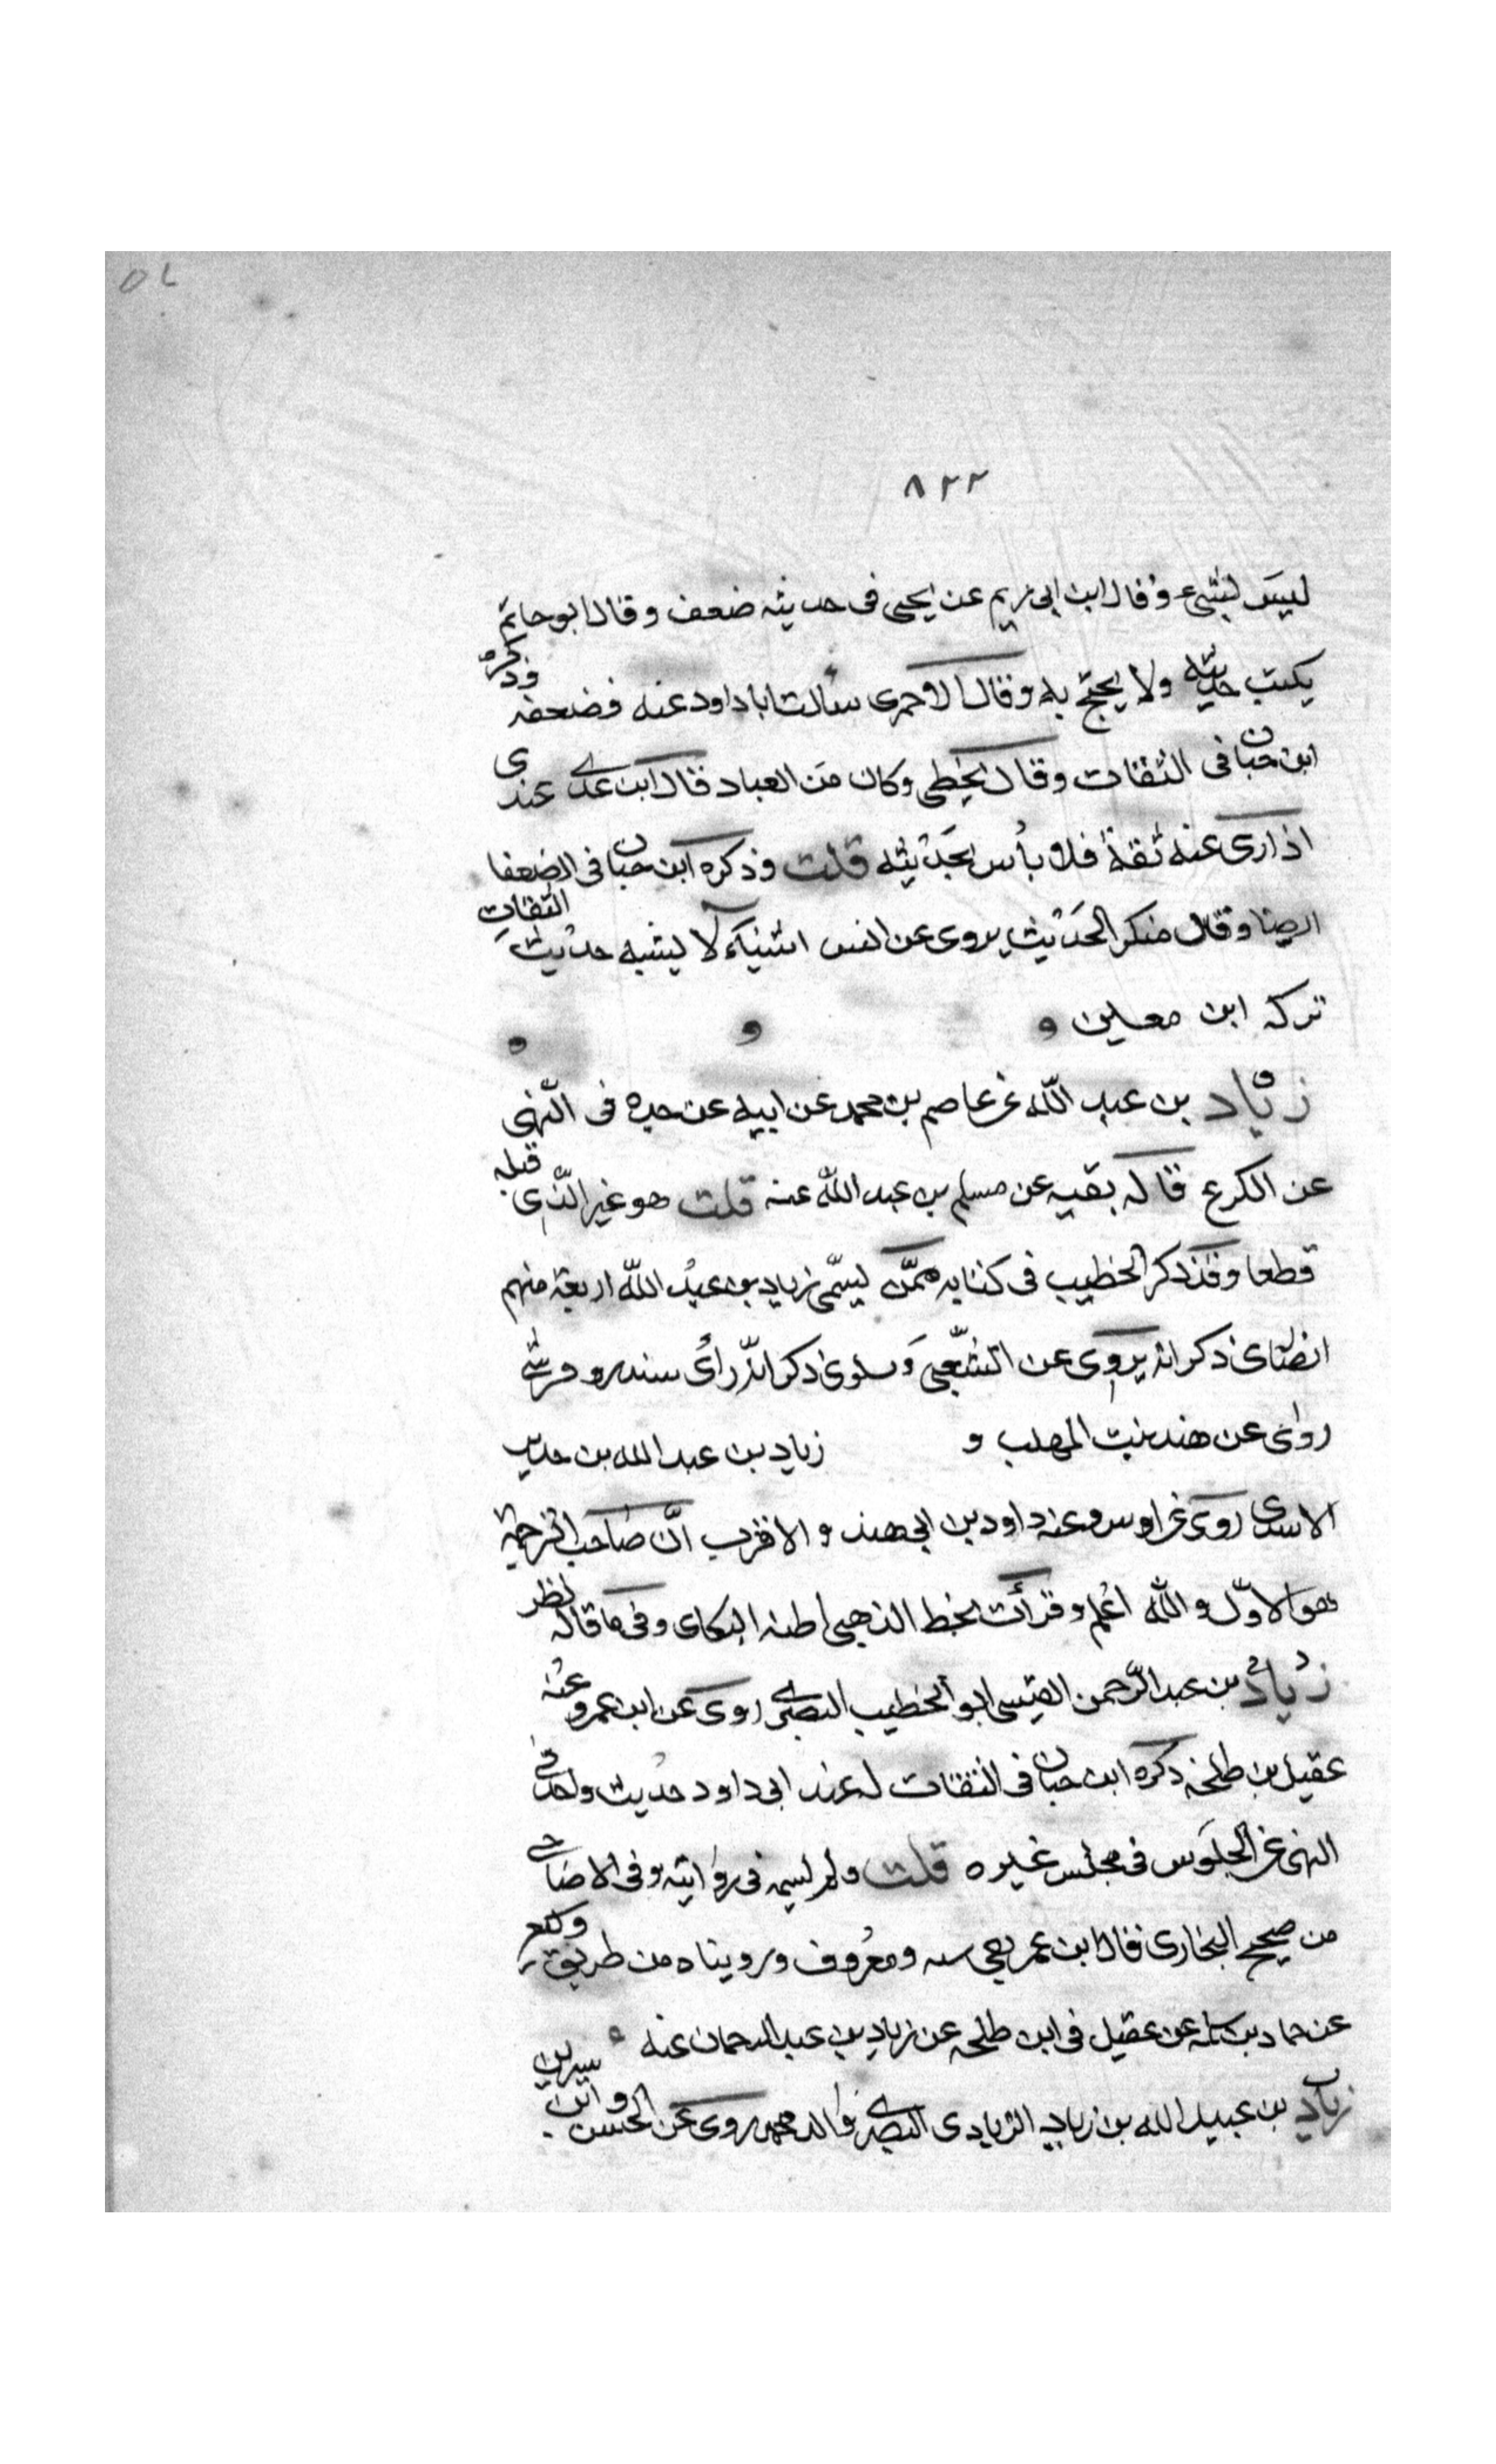 ٥٧
٨٢٢
ليس بشيء وقال ابن ابي مريم عن يحيى فى حديثه ضعف وقال ابو حاتم
يكتب حديثه ولا يحتج به وقال الاجرى سألت ابا داود عنه فضعفه وذكره
ابن حبان فى الثقات وقال يخطى وكان من العباد قال ابن عدي عندى
اذا روى عنه ثقة فلا بأس بحديثه قلت وذكره ابن حبان فى الضعفا
ايضا وقال منكر الحديث يروى عن انس اشياء لا يشبه حديث الثقات
تركه ابن معين
زياد بن عبد الله عن عاصم بن محمد عن ابيه عن جده فى النهى
عن الكرع قاله بقيه عن مسلم بن عبد الله عنه قلت هو غير الذى قبله
قطعا وقد ذكر الخطيب فى كتابه ممن يسمى زياد بن عبد الله اربعة منهم
ذكر انه يروى عن الشعبى ذكر انه رأى
روى عن هند بنت المهلب و زياد بن عبد الله بن حدير
الاسدى روى عن اوس وعنه داود بن ابي هند والاقرب ان صاحب الترجمة
هو الاول والله اعلم وقرأت بخط الذهبى اظنه البكاى وفى ما قاله نظر
زياد بن عبد الرحمن القيسى ابو الخطيب البصرى روى عن ابن عمر وعنه
عقيل بن طلحة ذكره ابن حبان فى الثقات له عند ابى داود حديث واحد فى
النهى عن الجلوس فى مجلس غيره قلت ولم يسمه فى روايته وفى الاضاحى
من صحيح البخارى فقال ابن عمر هى سنه ومعروف ورويناه من طريق وكيع
عن حماد بن سلمه عن عقيل فى ابن طلحه عن زياد بن عبد الرحمان عنه
زياد بن عبيد الله بن زياد الزيادى البصرى والد محمد روى عن الحسن وابن سيرين